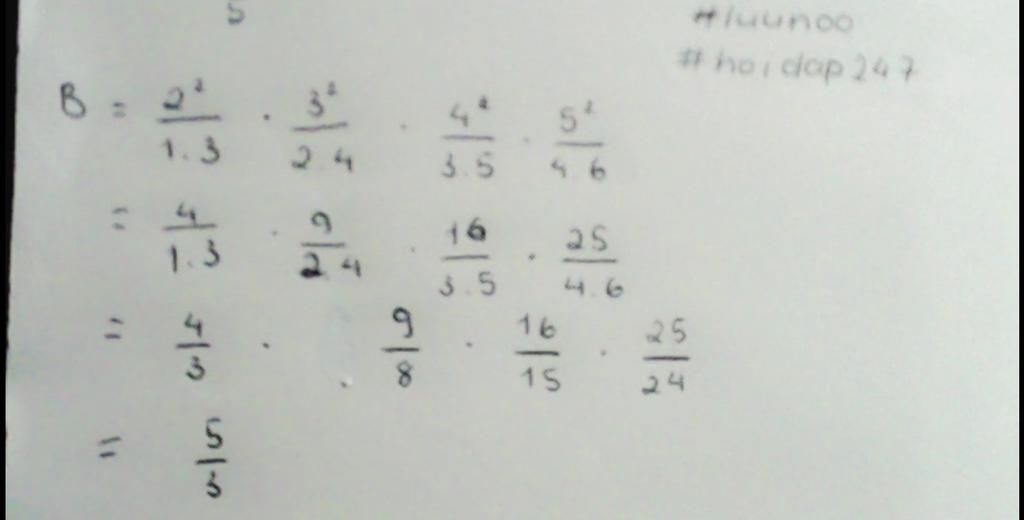 5
#luunoo
#hoidap247
B = 2²/1.3 . 3²/2.4 . 4²/3.5 . 5²/4.6
= 4/1.3 . 9/2.4 . 16/3.5 . 25/4.6
= 4/3 . 9/8 . 16/15 . 25/24
= 5/3